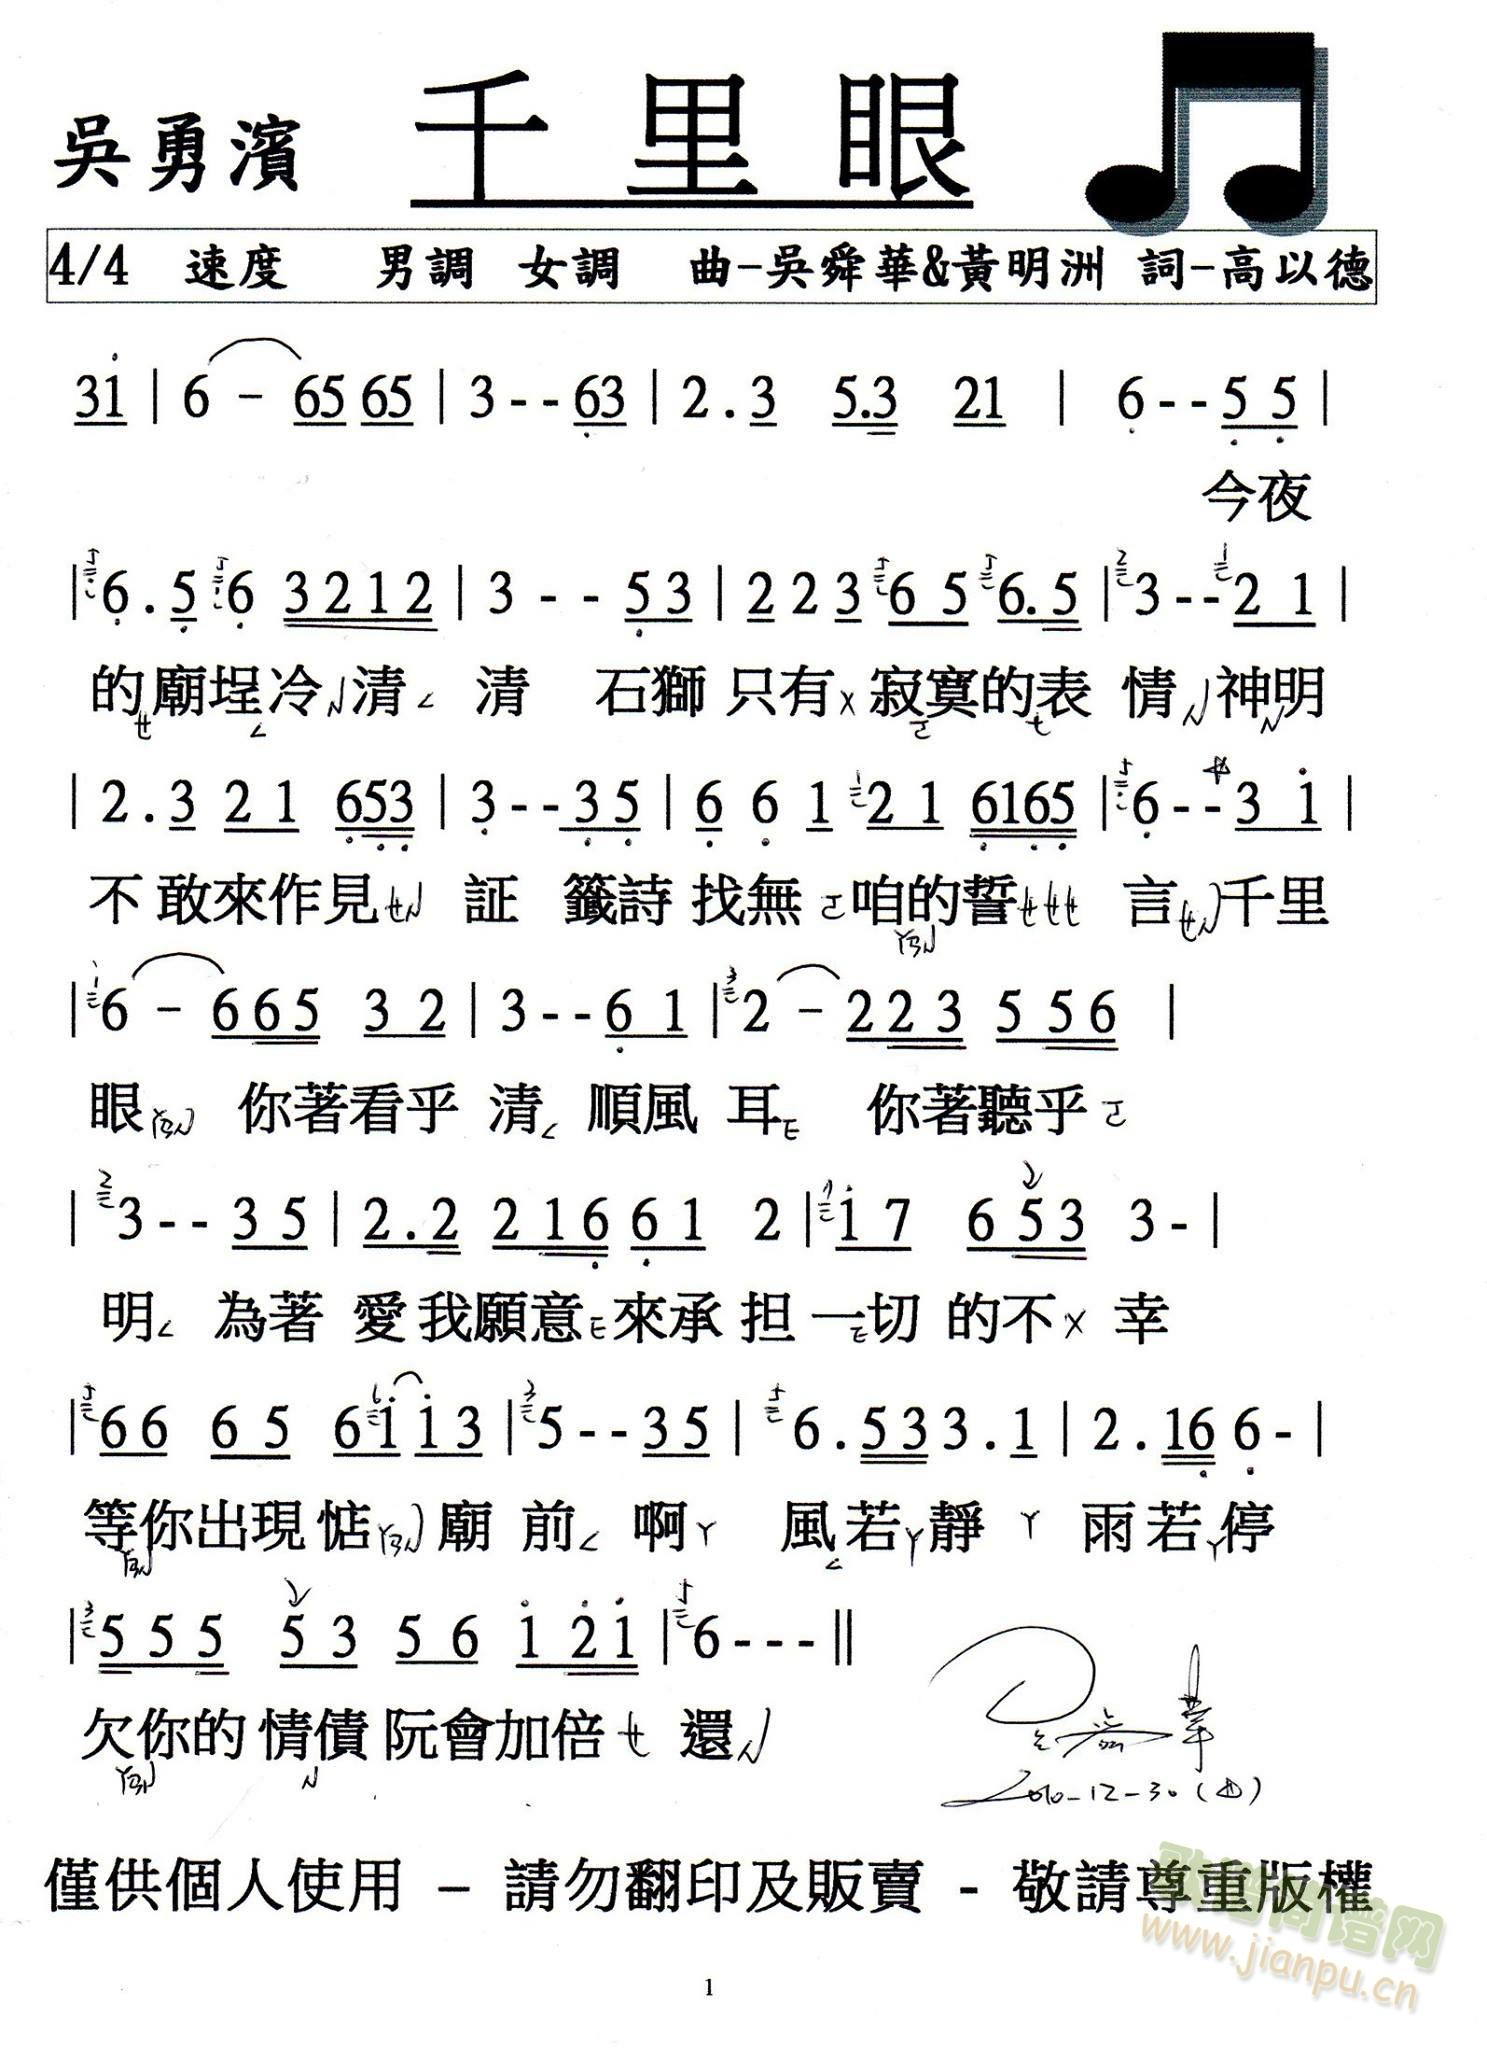 吳勇濱 千里眼
4/4 速度 男調 女調 曲-吳舜華&黃明洲 詞-高以德
3i | 6 - 65 65 | 3 - - 63 | 2 . 3 5.3 21 | 6 - - 5 5 |
今夜
| 6 . 5 6 3 2 1 2 | 3 - - 5 3 | 2 2 3 6 5 6. 5 | 3 - - 2 1 |
的廟埕冷清 清 石獅只有寂寞的表情 神明
| 2 . 3 2 1 653 | 3 - - 3 5 | 6 6 1 2 1 6165 | 6 - - 3 i |
不敢來作見 証 籤詩找無咱的誓 言 千里
| 6 - 6 6 5 3 2 | 3 - - 6 1 | 2 - 2 2 3 5 5 6 |
眼 你著看乎 清 順風 耳 你著聽乎
| 3 - - 3 5 | 2 . 2 2 1 6 6 1 2 | i 7 6 5 3 3 - |
明 為著 愛我願意來承担一切 的不 幸
| 66 6 5 6i i3 | 5 - - 35 | 6 . 533 . 1 | 2 . 16 6 - |
等你出現惦 廟 前 啊 風若靜 雨若停
| 5 5 5 5 3 5 6 i 2i | 6 - - - ||
欠你的情債阮會加倍 還
2010-12-30(四)
僅供個人使用 – 請勿翻印及販賣 - 敬請尊重版權
歌谱简谱网
www.jianpu.cn
1